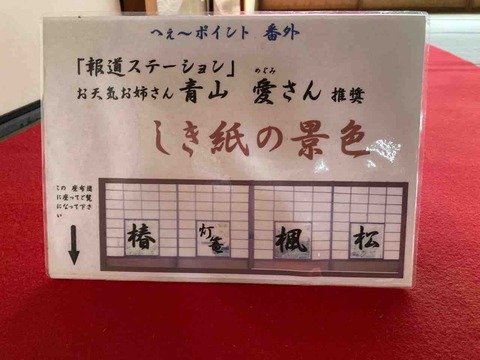 へぇ〜ポイント 番外
「報道ステーション」
めぐみ
お天気お姉さん 青山 愛さん 推奨
しき紙の景色
この座布団
に座ってご覧
になって下さ
い
椿 灯篭 楓 松